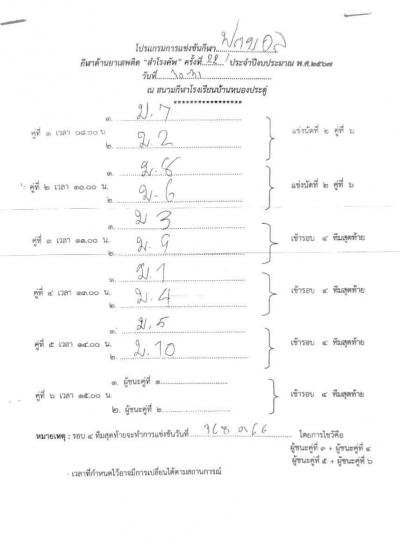 โปรแกรมการแข่งขันกีฬา ฟุตบอล
กีฬาต้านยาเสพติด "สำโรงคัพ" ครั้งที่ 22 / ประจำปีงบประมาณ พ.ศ.๒๕๖๗
วันที่
ณ สนามกีฬาโรงเรียนบ้านหนองประดู่
******************
๑. ม. 7
คู่ที่ ๑ เวลา ๐๙.๐๐ น. แข่งนัดที่ ๒ คู่ที่ ๖
๒. ม 2
๑. ม. 8
คู่ที่ ๒ เวลา ๑๐.๐๐ น. แข่งนัดที่ ๒ คู่ที่ ๖
๒. ม. 6
๑. ม 3
คู่ที่ ๓ เวลา ๑๑.๐๐ น. เข้ารอบ ๔ ทีมสุดท้าย
๒. ม. 9
๑. ม. 1
คู่ที่ ๔ เวลา ๑๓.๐๐ น. เข้ารอบ ๔ ทีมสุดท้าย
๒. ม. 4
๑. ม. 5
คู่ที่ ๕ เวลา ๑๔.๐๐ น. เข้ารอบ ๔ ทีมสุดท้าย
๒. ม. 10
๑. ผู้ชนะคู่ที่ ๑
คู่ที่ ๖ เวลา ๑๕.๐๐ น. เข้ารอบ ๔ ทีมสุดท้าย
๒. ผู้ชนะคู่ที่ ๒
หมายเหตุ : รอบ ๔ ทีมสุดท้ายจะทำการแข่งขันวันที่ โดยการไขว้คือ
ผู้ชนะคู่ที่ ๓ + ผู้ชนะคู่ที่ ๔
ผู้ชนะคู่ที่ ๕ + ผู้ชนะคู่ที่ ๖
- เวลาที่กำหนดไว้อาจมีการเปลี่ยนได้ตามสถานการณ์